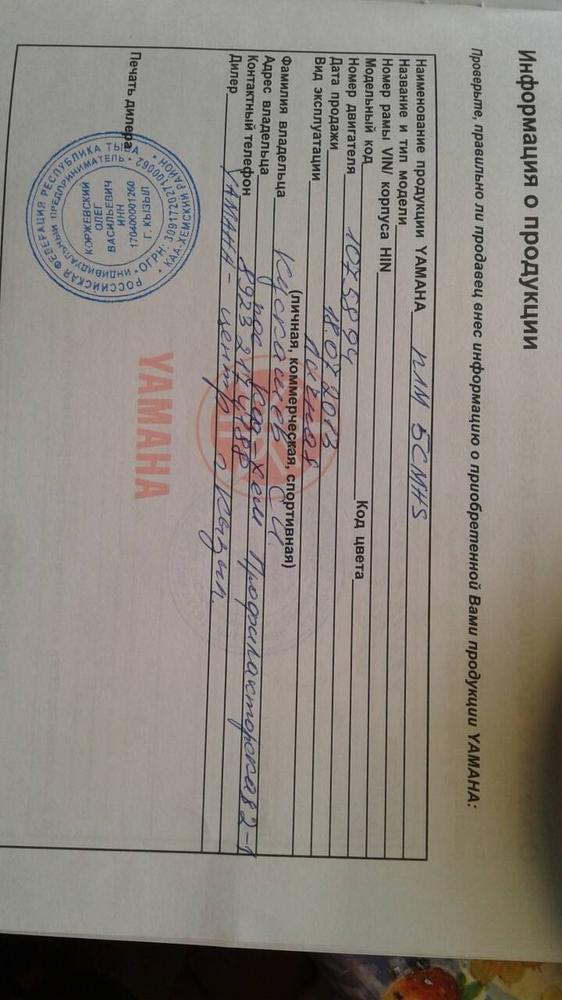 Информация о продукции
Проверьте, правильно ли продавец внес информацию о приобретенной Вами продукции YAMAHA:
Наименование продукции YAMAHA ПЛМ 5CMHS
Название и тип модели
Номер рамы VIN/ корпуса HIN
Модельный код Код цвета
Номер двигателя 1075894
Дата продажи 18.07.2013
Вид эксплуатации Личная
(личная, коммерческая, спортивная)
Фамилия владельца С.И.
Адрес владельца пос. Каа-хем Профилакторская 82-1
Контактный телефон
Дилер YAMAHA - центр г. Кызыл.
Печать дилера
YAMAHA
РОССИЙСКАЯ ФЕДЕРАЦИЯ РЕСПУБЛИКА ТЫВА • КАА-ХЕМСКИЙ РАЙОН •
ИНДИВИДУАЛЬНЫЙ ПРЕДПРИНИМАТЕЛЬ • ОГРН: 309171202710062
КОРЖЕВСКИЙ
ОЛЕГ
ВАСИЛЬЕВИЧ
ИНН
170400001260
Г. КЫЗЫЛ